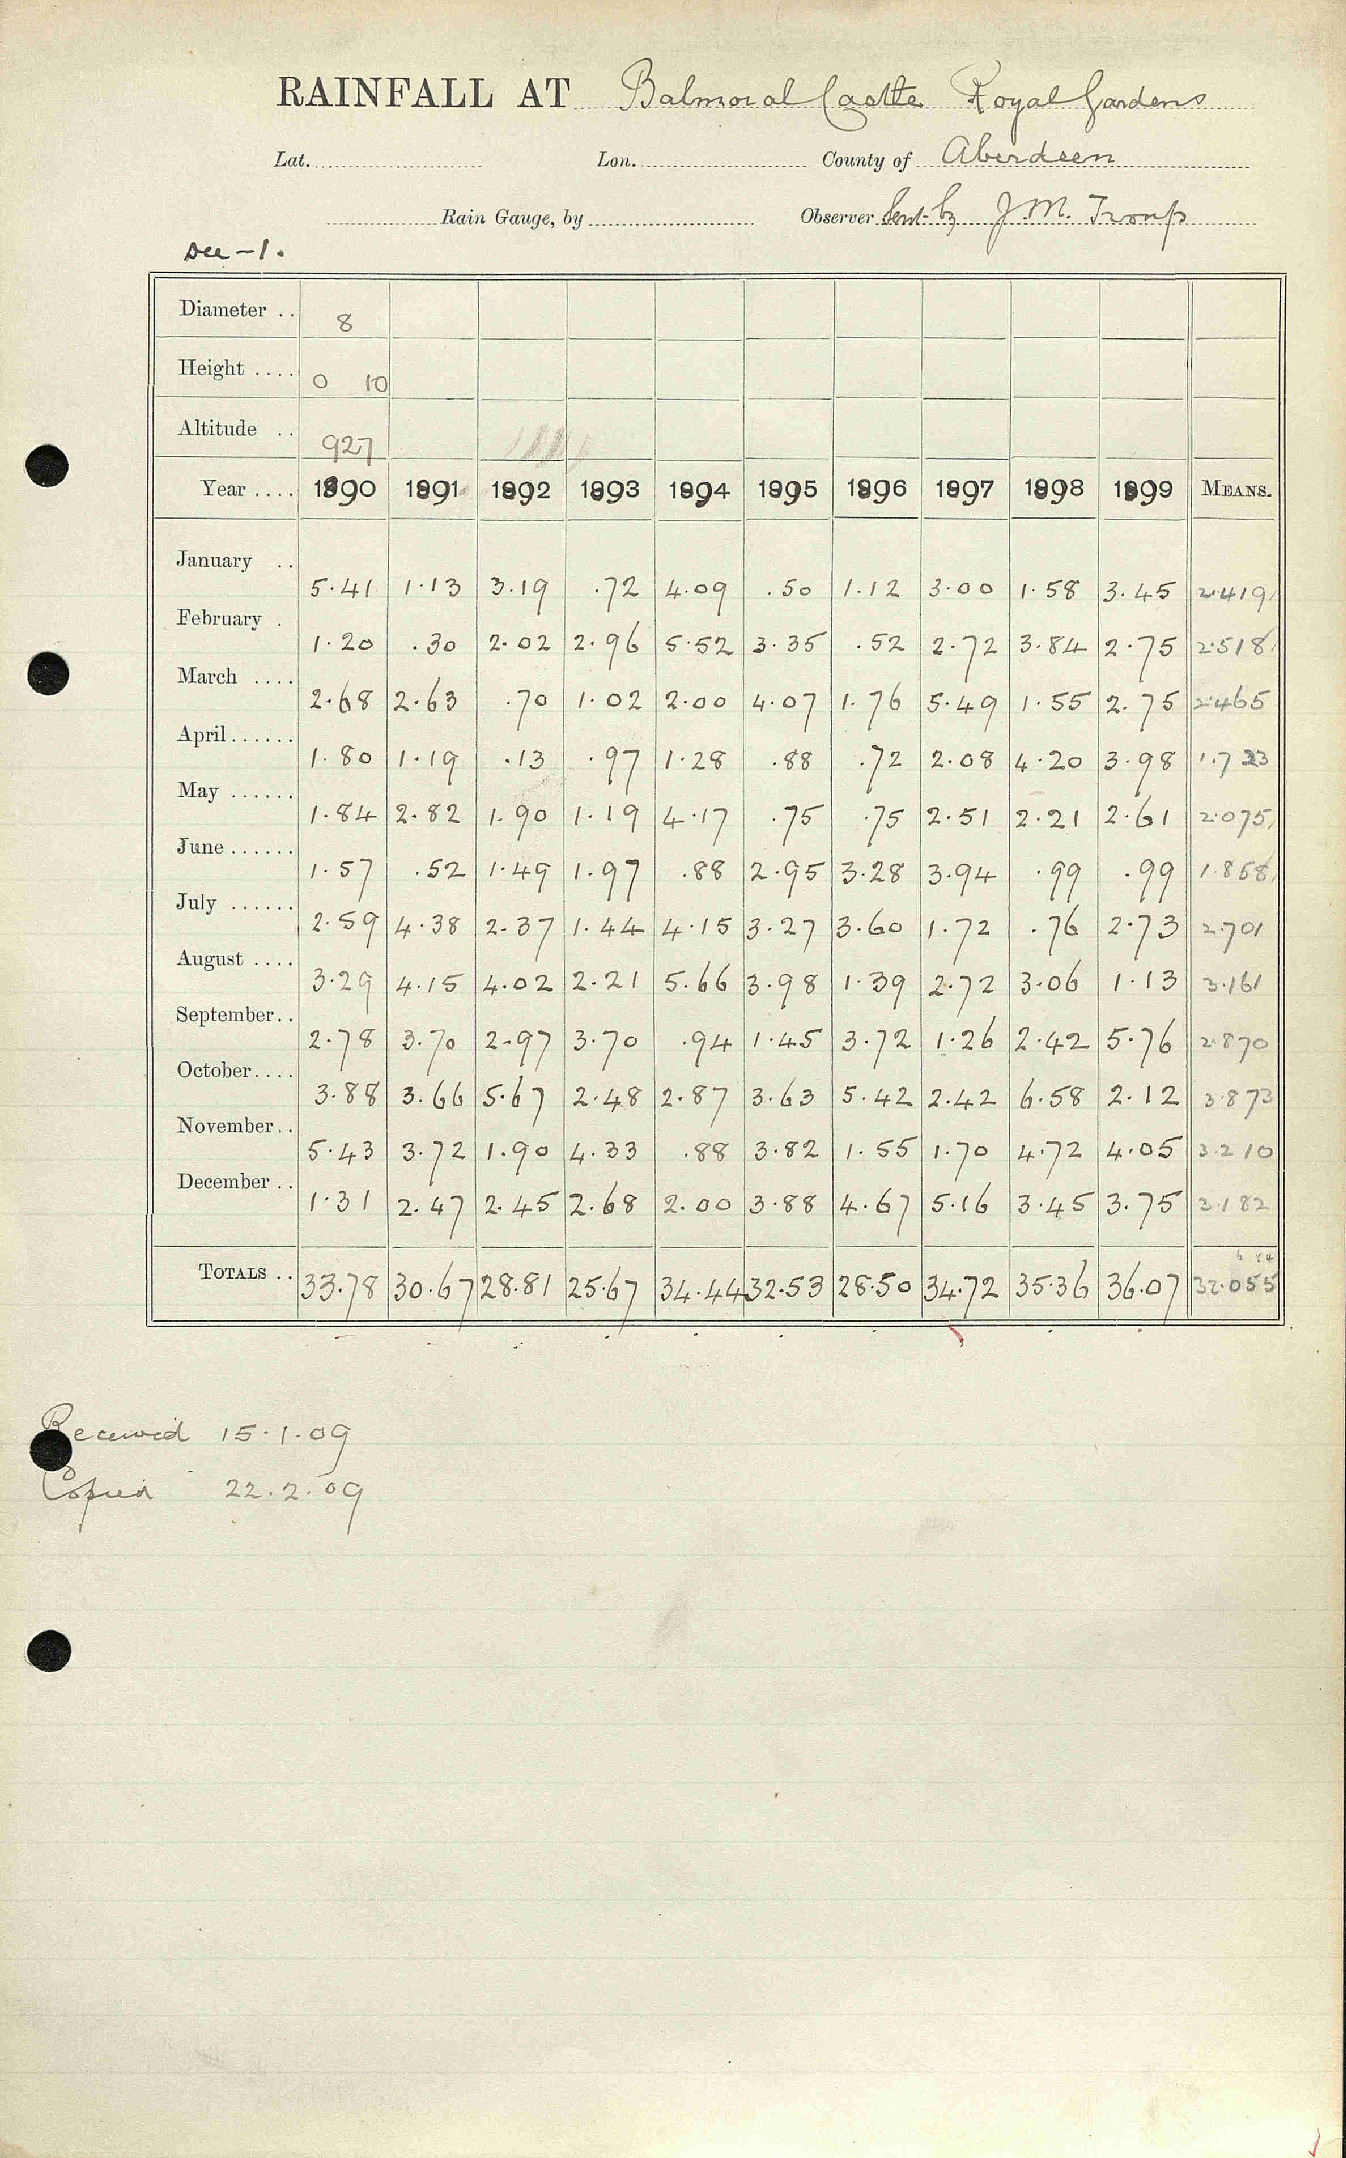 RAINFALL AT Balmoral Castle Royal Gardens
Lat. Lon. County of Aberdeen
Rain Gauge, by Observer Sent by J.M. Troup
Dec -1.
Diameter .. 8
Height .... 0 10
Altitude .. 927
Year .... 1890 1891 1892 1893 1894 1895 1896 1897 1898 1899 MEANS.
January .. 5.41 1.13 3.19 .72 4.09 .50 1.12 3.00 1.58 3.45 2.419
February . 1.20 .30 2.02 2.96 5.52 3.35 .52 2.72 3.84 2.75 2.518
March .... 2.68 2.63 .70 1.02 2.00 4.07 1.76 5.49 1.55 2.75 2.465
April...... 1.80 1.19 .13 .97 1.28 .88 .72 2.08 4.20 3.98 1.723
May ...... 1.84 2.82 1.90 1.19 4.17 .75 .75 2.51 2.21 2.61 2.075
June...... 1.57 .52 1.49 1.97 .88 2.95 3.28 3.94 .99 .99 1.858
July ...... 2.59 4.38 2.37 1.44 4.15 3.27 3.60 1.72 .76 2.73 2.701
August .... 3.29 4.15 4.02 2.21 5.66 3.98 1.39 2.72 3.06 1.13 3.161
September.. 2.78 3.70 2.97 3.70 .94 1.45 3.72 1.26 2.42 5.76 2.870
October.... 3.88 3.66 5.67 2.48 2.87 3.63 5.42 2.42 6.58 2.12 3.873
November.. 5.43 3.72 1.90 4.33 .88 3.82 1.55 1.70 4.72 4.05 3.210
December .. 1.31 2.47 2.45 2.68 2.00 3.88 4.67 5.16 3.45 3.75 3.182
TOTALS .. 33.78 30.67 28.81 25.67 34.44 32.53 28.50 34.72 35.36 36.07 32.055
Received 15.1.09
Copied 22.2.09